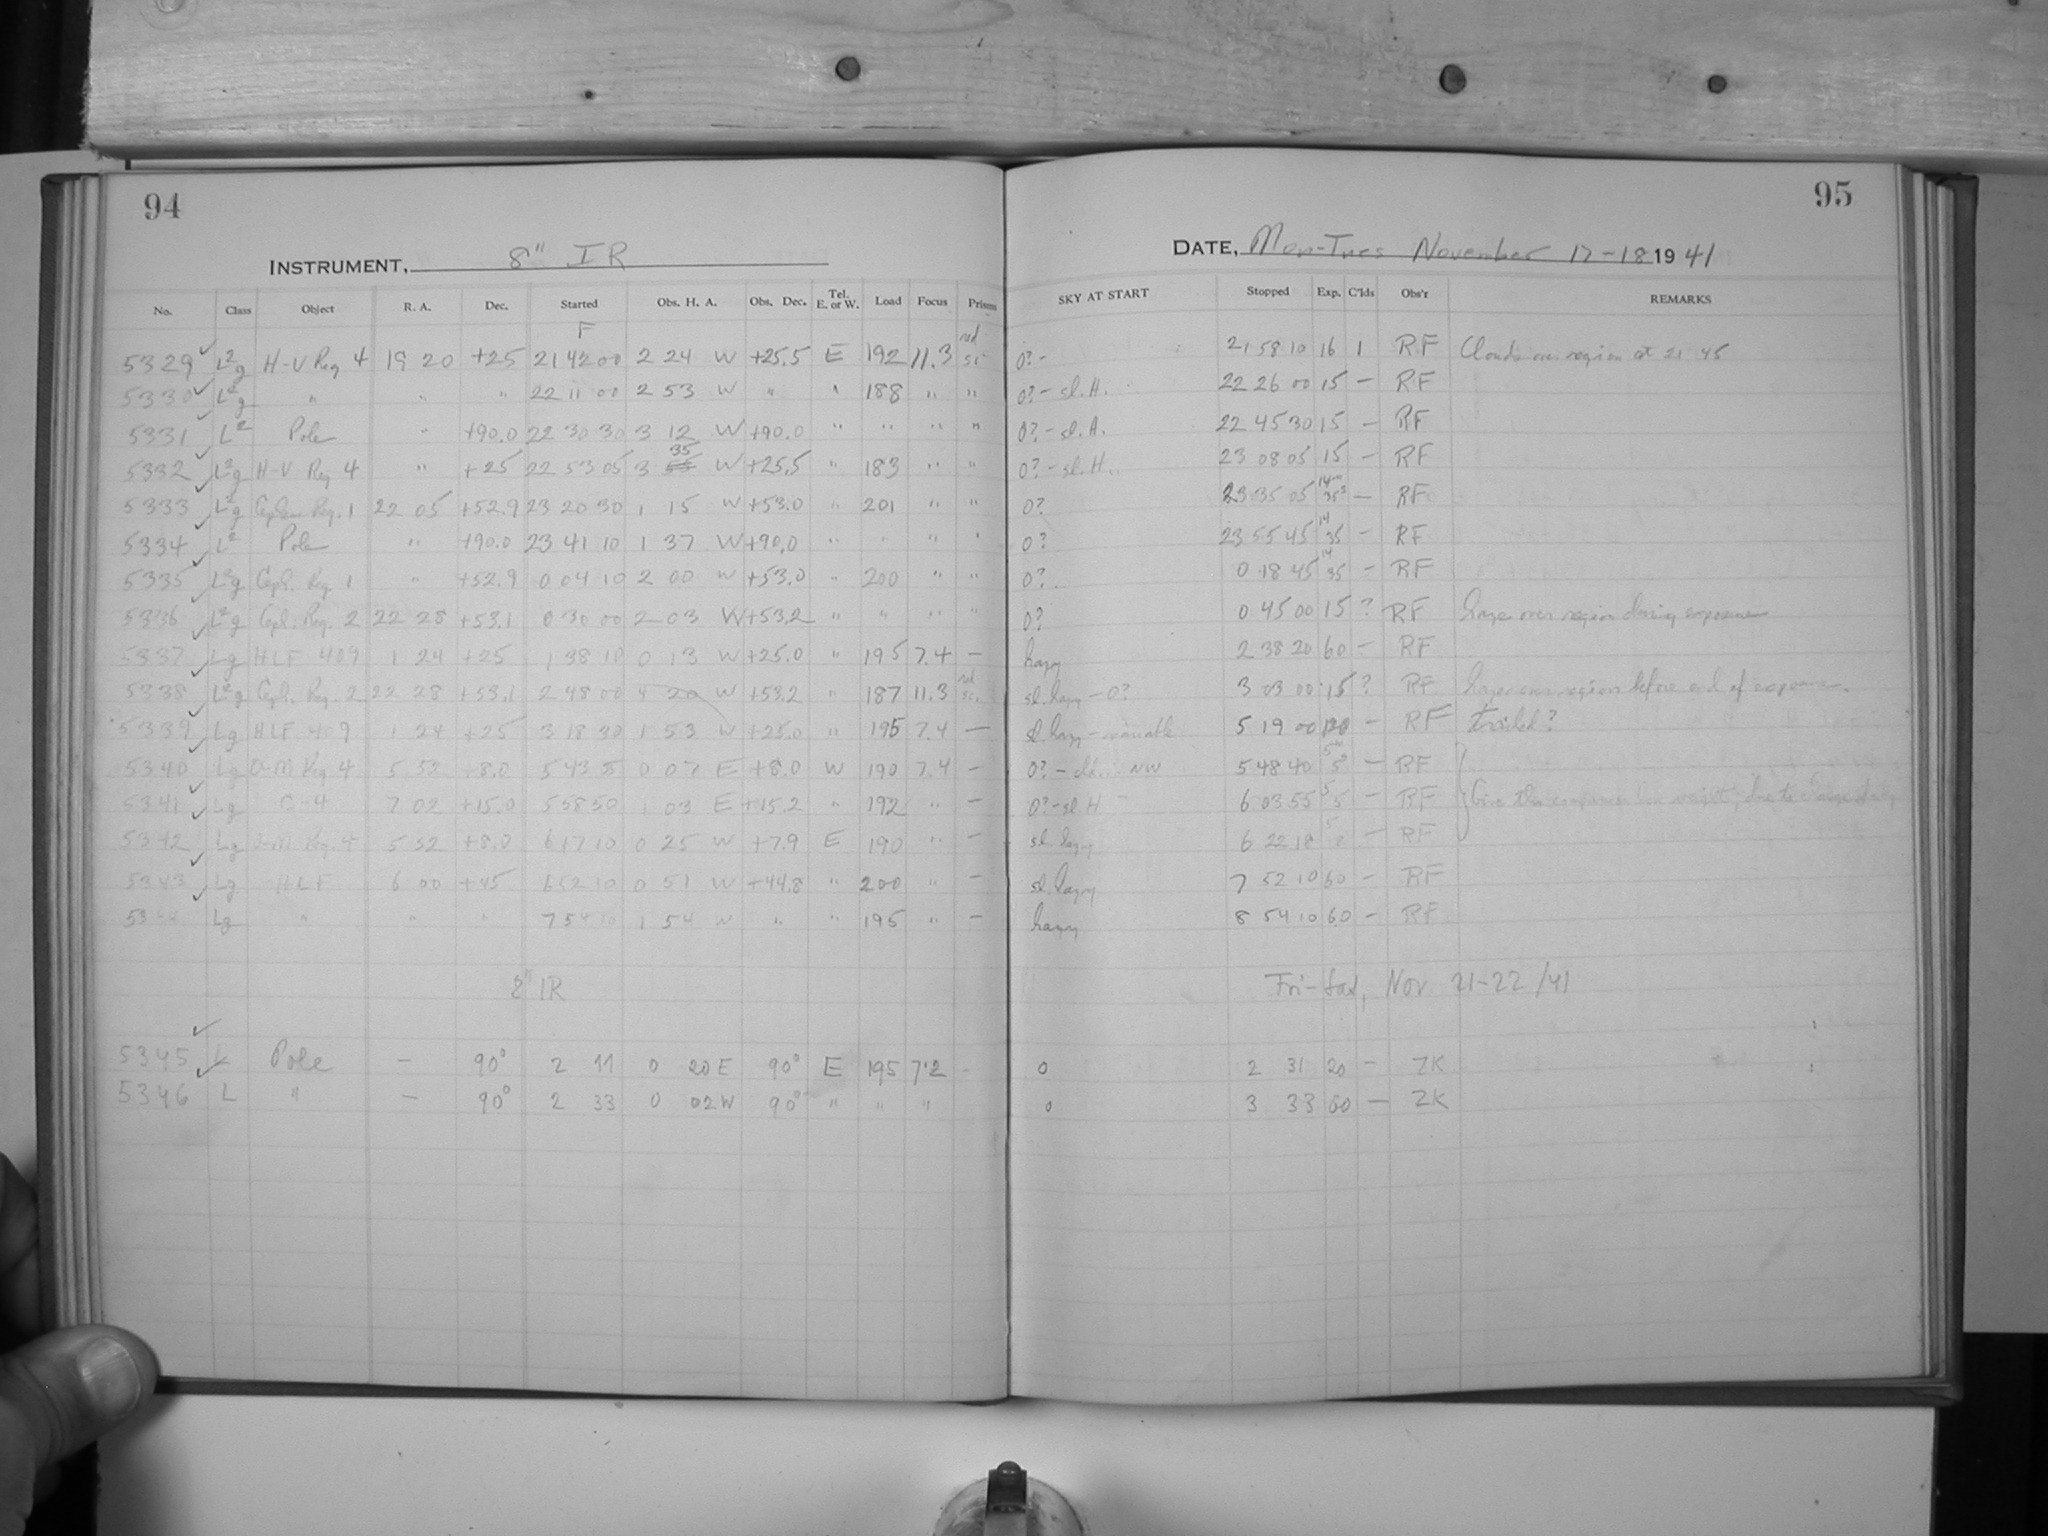 94
INSTRUMENT, 8" IR
No. Class Object R. A. Dec. Started Obs. H. A. Obs. Dec. Tel. E. or W. Load Focus Prisms
F
5329 L²g H-V Reg 4 19 20 +25 21 42 00 2 24 W +25.5 E 192 11.3 red
5330 L²g " " " 22 11 00 2 53 W " " 188 " "
5331 L² Pole " +90.0 22 30 30 3 12 W +90.0 " " " "
5332 L²g H-V Reg 4 " +25 22 53 05 3 35 W +25.5 " 183 " "
5333 L²g Reg. 1 22 05 +52.9 23 20 30 1 15 W +53.0 " 201 " "
5334 L² Pole " +90.0 23 41 10 1 37 W +90.0 " " " "
5335 L²g Ceph. Reg. 1 " +52.9 0 04 10 2 00 W +53.0 " 200 " "
5336 L²g Ceph. Reg. 2 22 28 +53.1 0 30 00 2 03 W +53.2 " " " "
5337 Lg HLF 409 1 24 +25 1 38 10 0 13 W +25.0 " 195 7.4 —
5338 L²g Ceph. Reg. 2 22 28 +53.1 2 48 00 4 20 W +53.2 " 187 11.3 red sc.
5339 Lg HLF 409 1 24 +25 3 18 30 1 53 W +25.0 " 195 7.4 —
5340 Lg Reg 4 5 52 +8.0 5 43 0 07 E +8.0 W 190 7.4 —
5341 Lg C-4 7 02 +15.0 5 58 50 1 03 E +15.2 " 192 " —
5342 Lg Reg. 4 5 52 +8.0 6 17 10 0 25 W +7.9 E 190 " —
5343 Lg HLF 6 00 +45 6 52 10 0 51 W +44.8 " 200 " —
Lg " " " 7 54 10 1 54 W " " 195 " —
8" IR
5345 L Pole — 90° 2 11 0 20 E 90° E 195 7.2 -
5346 L " — 90° 2 33 0 02 W 90° " " "
95
DATE, Mon-Tues November 17-18 1941
SKY AT START Stopped Exp. C'lds Obs'r REMARKS
0? - 21 58 10 16 1 RF Clouds over region at 21 45
0? - sl. H. 22 26 00 15 — RF
0? - sl. H. 22 45 30 15 — RF
0? - sl. H. 23 08 05 15 — RF
0? 23 35 05 14ᵐ 35ˢ — RF
0? 23 55 45 14 35 — RF
0? 0 18 45 14 35 — RF
0? 0 45 00 15 ? RF haze over region during exposure
hazy 2 38 20 60 — RF
sl. hazy - 0? 3 03 00 15 ? RF haze over region before end of exposure.
sl. hazy - variable 5 19 00 120 — RF trailed?
0? - NW 5 48 40 5 — RF
0? - sl. H 6 03 55 5 5 — RF
sl. hazy 6 22 18 5 8 — RF
sl. hazy 7 52 10 60 — RF
hazy 8 54 10 60 — RF
Fri-Sat, Nov. 21-22/41
0 2 31 20 — ZK
0 3 33 60 — ZK